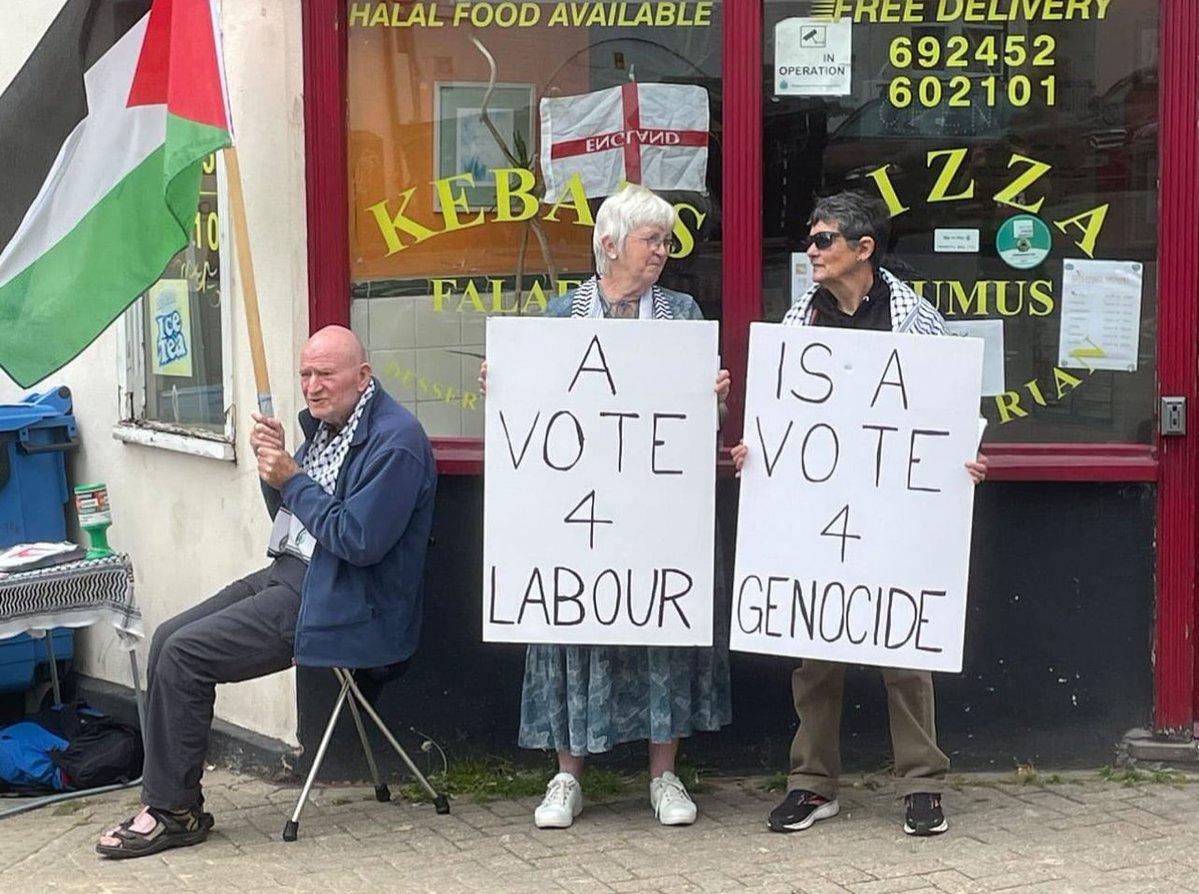 HALAL FOOD AVAILABLE
FREE DELIVERY
692452
602101
IN
OPERATION
ENGLAND
KEBA S
IZZA
FALA
UMUS
DESSER
RIAN
Ice
Tea
A
VOTE
4
LABOUR
IS A
VOTE
4
GENOCIDE